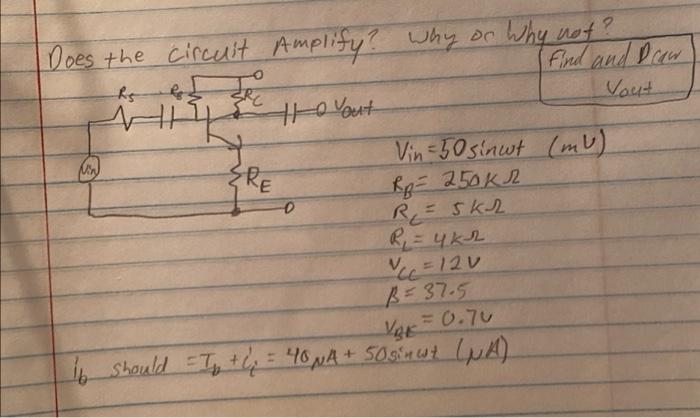 Does the circuit Amplify? Why or Why not?
Find and Draw
Vout
Rs
RB
RC
Vout
Vin
RE
Vin = 50 sinωt (mV)
RB = 250KΩ
RC = 5KΩ
RL = 4KΩ
VCC = 12V
β = 37.5
VBE = 0.7V
ib should = Ib + ii = 40μA + 50sinωt (μA)